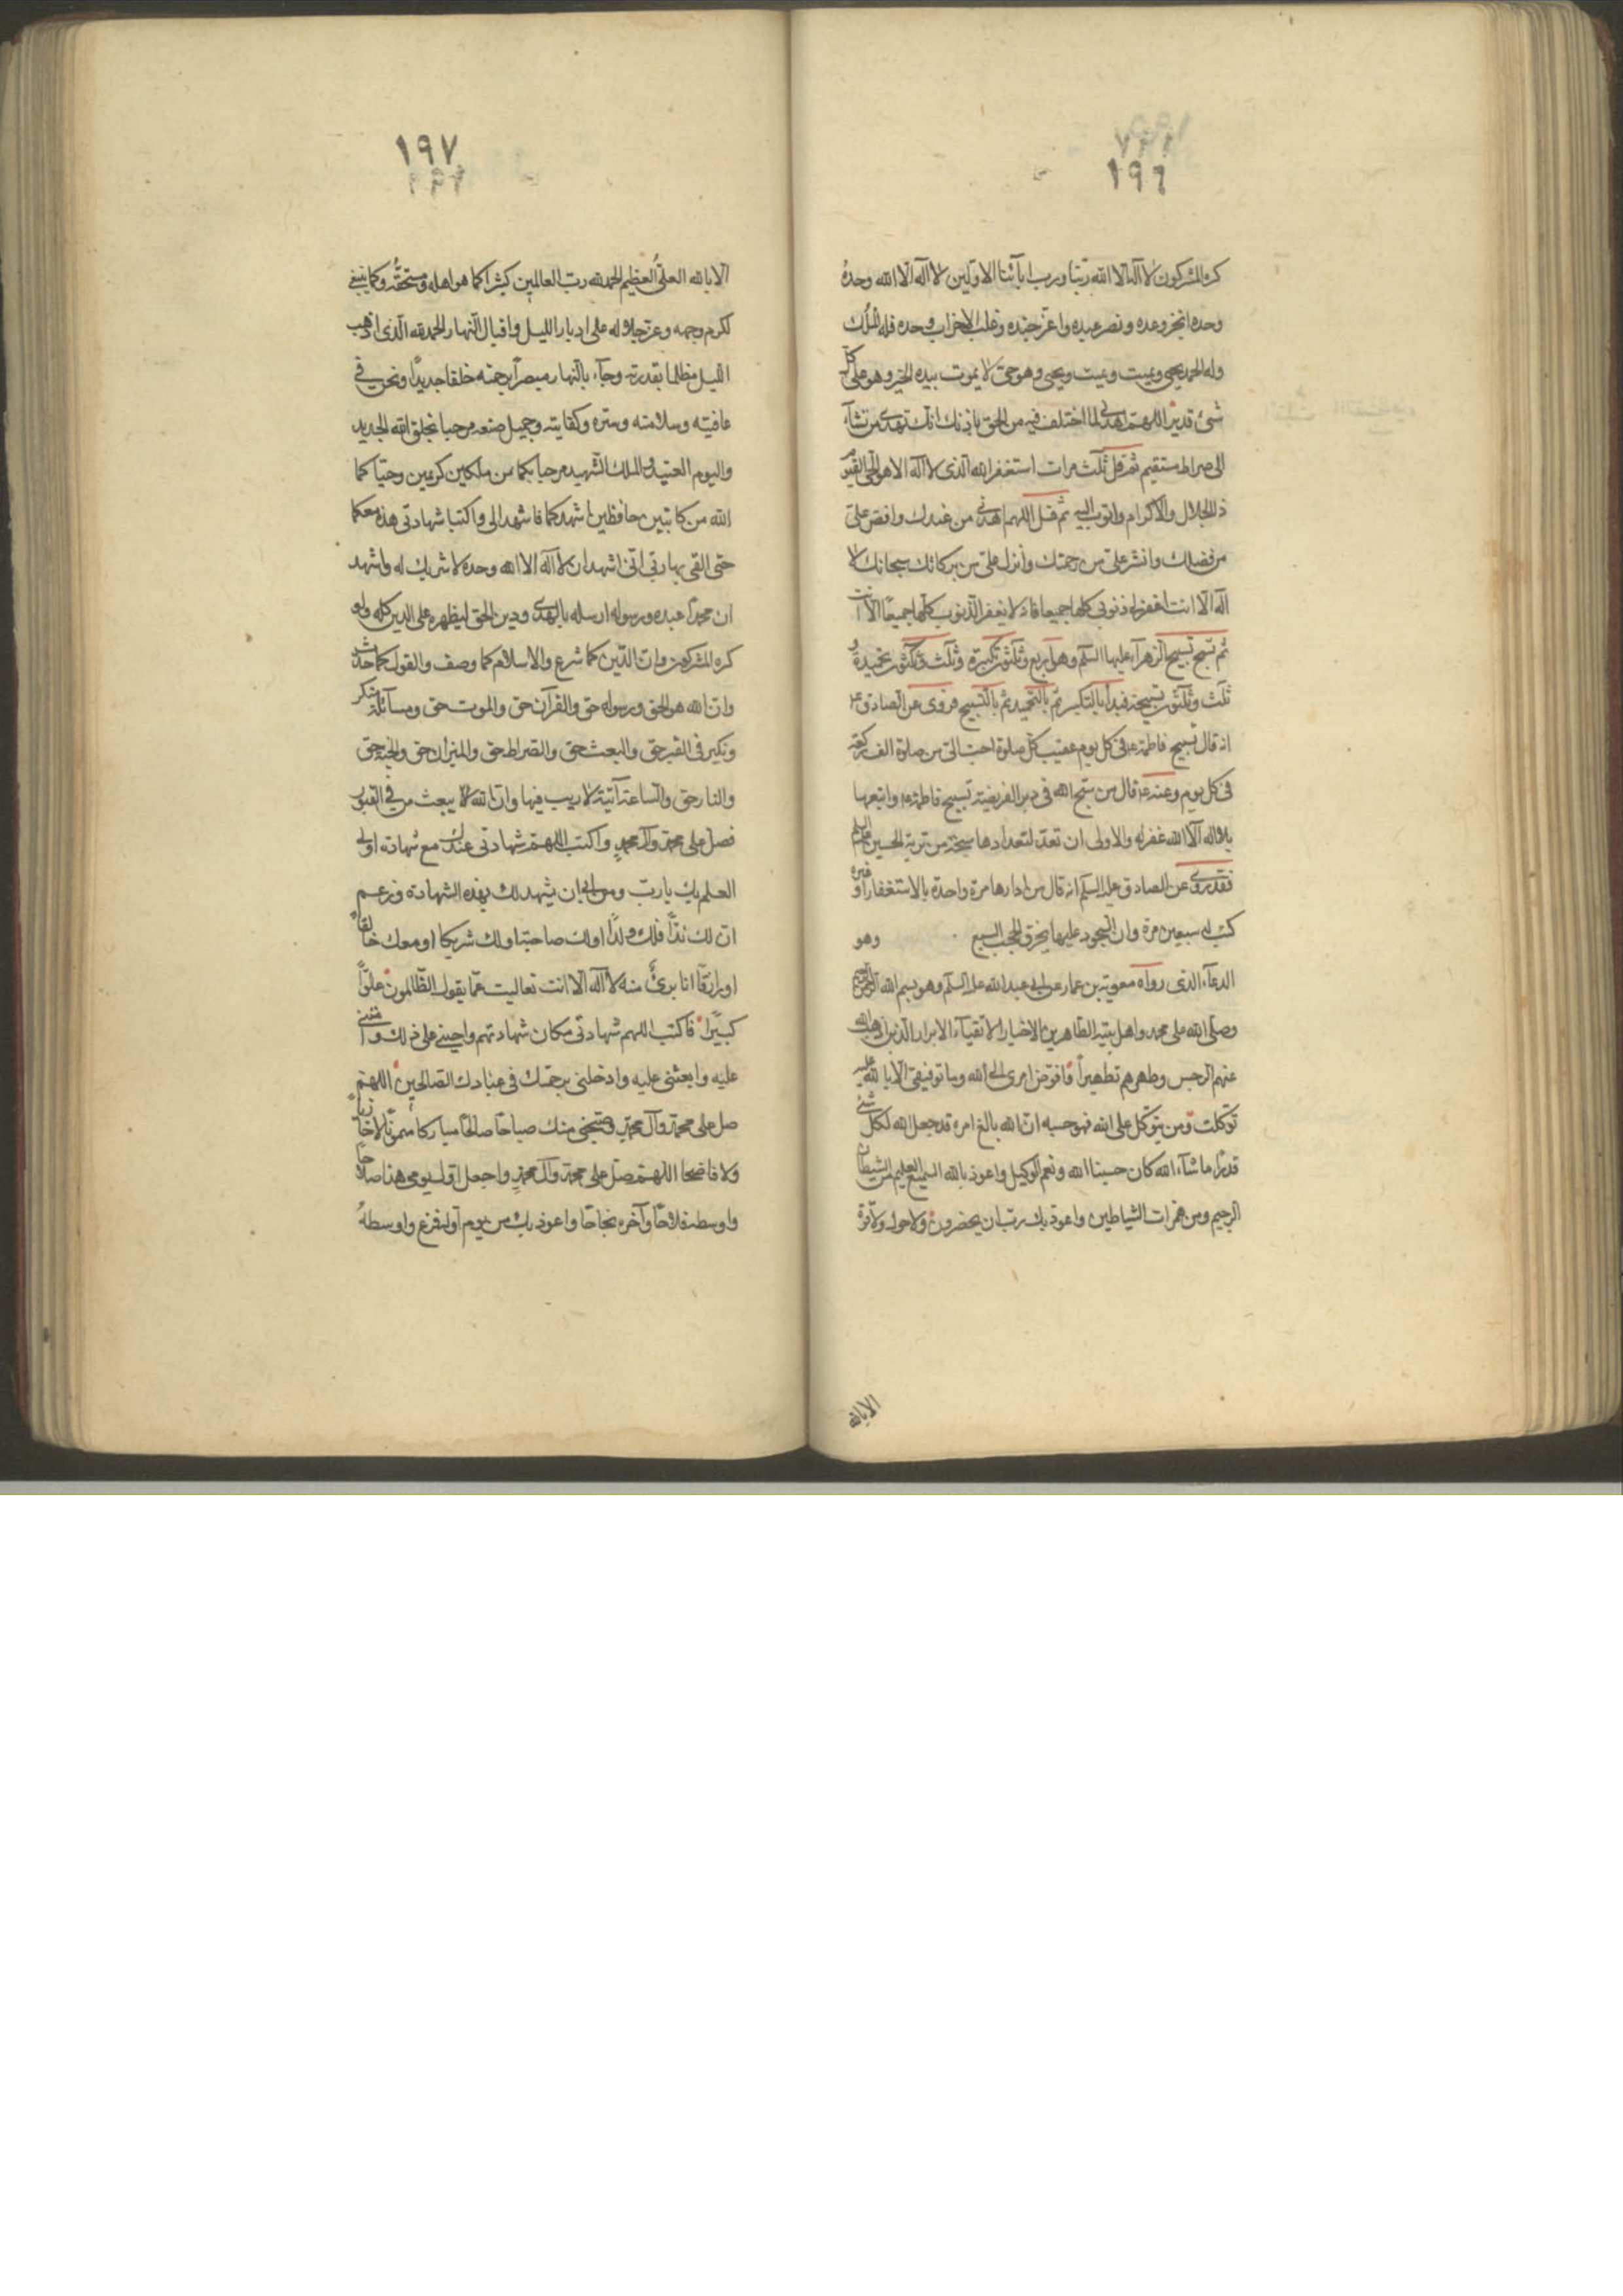 ١٩٦
كره المشركون لا اله الا الله ربنا ورب ابآئنا الاولين لا اله الا الله وحده
وحده انجز وعده ونصر عبده واعز جنده وغلب الاحزاب وحده فله الملك
وله الحمد يحيى ويميت ويميت ويحيى وهو حى لا يموت بيده الخير وهو على كل
شئ قدير اللهم اهدنى لما اختلف فيه من الحق باذنك انك تهدى من تشآء
الى صراط مستقيم ثم قل ثلث مرات استغفر الله الذى لا اله الا هو الحى القيوم
ذا الجلال والاكرام واتوب اليه ثم قل اللهم اهدنى من عندك وافض على
من فضلك وانشر على من رحمتك وانزل على من بركاتك سبحانك لا
اله الا انت اغفر لى ذنوبى كلها جميعا فانه لا يغفر الذنوب كلها جميعا الا انت
ثم تسبح تسبيح الزهرآء عليها السلم وهو اربع وثلثون تكبيرة وثلث وثلثون تحميدة و
ثلث وثلثون تسبيحة فيبدأ بالتكبير ثم بالتحميد ثم بالتسبيح فروى عن الصادق ع
انه قال تسبيح فاطمة ع فى كل يوم عقيب كل صلوة احب الى من صلوة الف ركعة
فى كل يوم وعنه ع قال من سبح الله فى دبر الفريضة تسبيح فاطمة ع واتبعها
بلا اله الا الله غفر له والاولى ان تعد لتعدادها سبحة من تربة الحسين عليه السلم
فقد روى عن الصادق عليه السلم انه قال من ادارها مرة واحدة بالاستغفار او غيره
كتب له سبعين مرة وان السجود عليها يخرق الحجب السبع وهو
الدعآء الذى رواه معوية بن عمار عن ابى عبد الله عليه السلم وهو بسم الله الرحمن الرحيم
وصلى الله على محمد واهل بيته الطاهرين الاخيار الاتقيآء الابرار الذين اذهب الله
عنهم الرجس وطهرهم تطهيرا وافوض امرى الى الله وما توفيقى الا بالله عليه
توكلت ومن يتوكل على الله فهو حسبه ان الله بالغ امره قد جعل الله لكل شئ
قدرا ما شآء الله كان حسبنا الله ونعم الوكيل واعوذ بالله السميع العليم من الشيطان
الرجيم ومن همزات الشياطين واعوذ بك رب ان يحضرون ولا حول ولا قوة
الا بالله
١٩٧
الا بالله العلى العظيم الحمد لله رب العالمين كثيرا كما هو اهله ومستحقه وكما ينبغى
لكرم وجهه وعز جلاله على ادبار الليل واقبال النهار الحمد لله الذى اذهب
الليل مظلما بقدرته وجآء بالنهار مبصرا برحمته خلقا جديدا ونحن فى
عافيته وسلامته وستره وكفايته وجميل صنعه مرحبا بخلق الله الجديد
واليوم العتيد والملك الشهيد مرحبا بكما من ملكين كريمين وحياكما
الله من كاتبين حافظين اشهدكما فاشهدا لى واكتبا شهادتى هذه معكما
حتى القى بها ربى انى اشهد ان لا اله الا الله وحده لا شريك له واشهد
ان محمدا عبده ورسوله ارسله بالهدى ودين الحق ليظهره على الدين كله ولو
كره المشركون وان الدين كما شرع والاسلام كما وصف والقول كما حدث
وان الله هو الحق ورسوله حق والقرآن حق والموت حق ومسآئلة منكر
ونكير فى القبر حق والبعث حق والصراط حق والميزان حق والجنة حق
والنار حق والساعة آتية لا ريب فيها وان الله يبعث من فى القبور
فصل على محمد وآل محمد واكتب اللهم شهادتى عندك مع شهادة اولى
العلم بك يا رب ومن ابى ان يشهد لك بهذه الشهادة وزعم
ان لك ندا او لك ولدا او لك صاحبة او لك شريكا او معك خالقا
او رازقا انا برئ منه لا اله الا انت تعاليت عما يقول الظالمون علوا
كبيرا فاكتب اللهم شهادتى مكان شهادتهم واحينى على ذلك وامتنى
عليه وابعثنى عليه وادخلنى برحمتك فى عبادك الصالحين اللهم
صل على محمد وآل محمد وصبحنى منك صباحا صالحا مباركا ميمونا لا خازيا
ولا فاضحا اللهم صل على محمد وآل محمد واجعل اول يومى هذا صلاحا
واوسطه فلاحا وآخره نجاحا واعوذ بك من يوم اوله فزع واوسطه